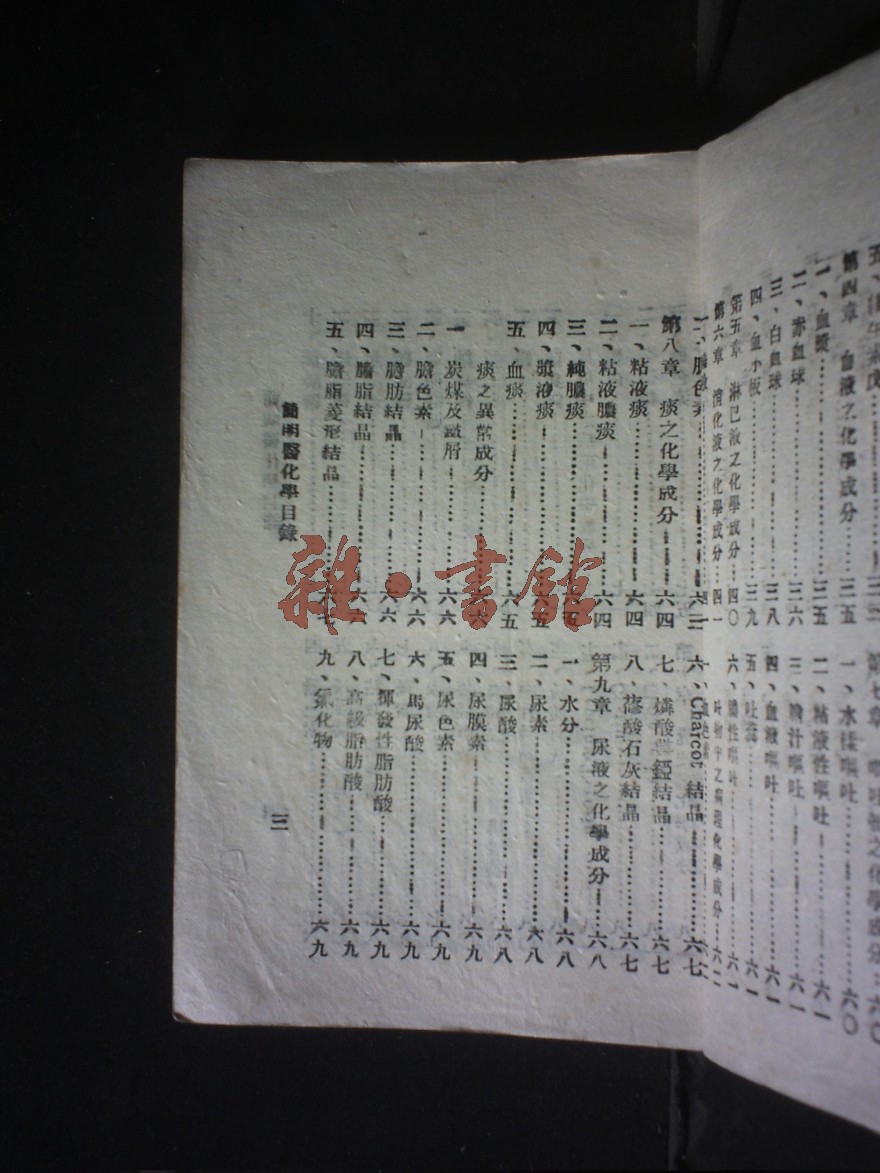 第四章　血液之化學成分……三五
一、血漿……三五
二、赤血球……三六
三、白血球……三八
四、血小板……三九
第五章　淋巴液之化學成分…四〇
第六章　消化液之化學成分…四一
一、水樣嘔吐……六〇
二、粘液性嘔吐……六一
三、膽汁嘔吐……六一
四、血液嘔吐……六一
五、吐糞……六一
六、膿性嘔吐……六一
吐物中之病理化學成分…六二
一、膽色素……六三
第八章　痰之化學成分……六四
一、粘液痰……六四
二、粘液膿痰……六四
三、純膿痰……六五
四、漿液痰……六五
五、血痰……六五
痰之異常成分……六六
一　炭煤及鐵屑……六六
二、膽色素……六六
三、脂肪結晶……六六
四、膽脂結晶……六六
五、膽脂菱形結晶……六七
六、Charcot 結晶……六七
七　燐酸　　結晶……六七
八、蓚酸石灰結晶……六七
第九章　尿液之化學成分……六八
一、水分……六八
二、尿素……六八
三、尿酸……六八
四、尿膜素……六九
五、尿色素……六九
六、馬尿酸……六九
七、揮發性脂肪酸……六九
八、高級脂肪酸……六九
九、氯化物……六九
簡明醫化學目錄
三
雜·書館